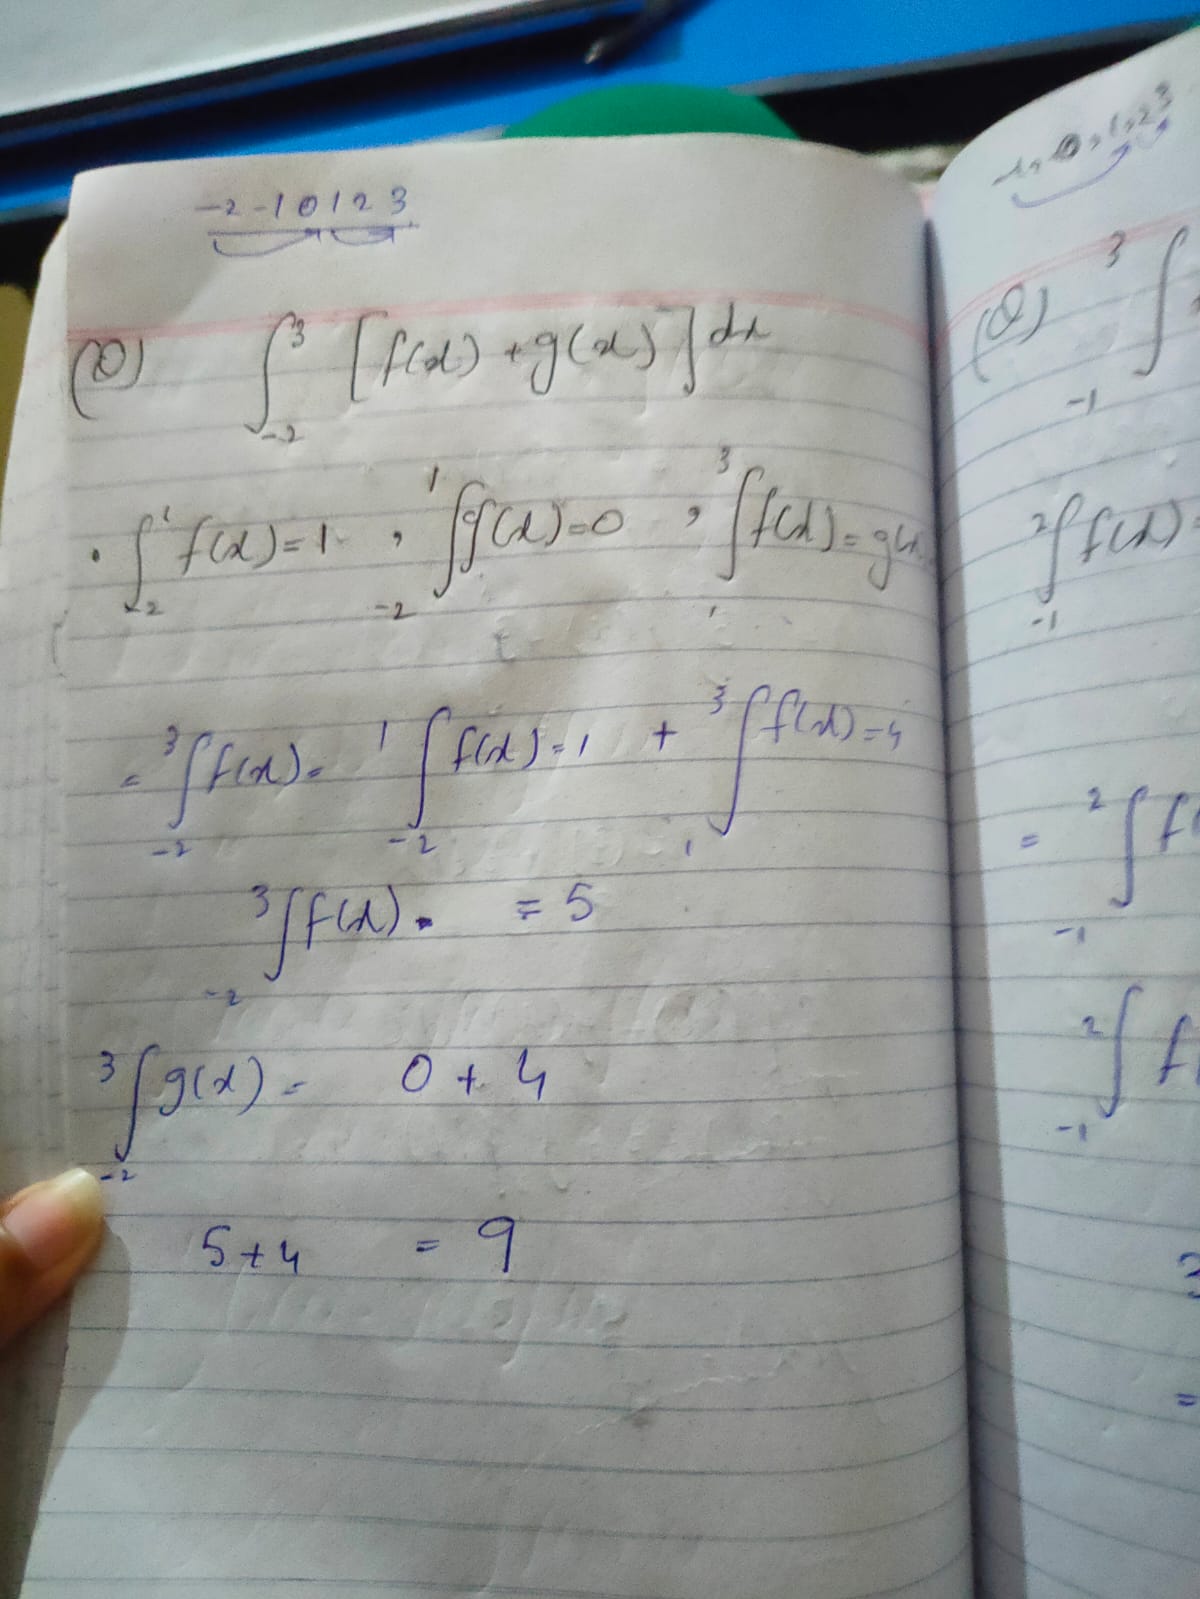 -2 -1 0 1 2 3
(Q) ∫_{-2}^{3} [f(x) + g(x)] dx
• ∫_{-2}^{1} f(x) = 1 , ∫_{-2}^{1} g(x) = 0 , ∫_{1}^{3} f(x) = g(x
= ∫_{-2}^{3} f(x) = ∫_{-2}^{1} f(x) = 1 + ∫_{1}^{3} f(x) = 4
∫_{-2}^{3} f(x) = 5
∫_{-2}^{3} g(x) = 0 + 4
5 + 4 = 9
0, 1, 2 3
(Q) ∫_{-1}^{3}
∫_{-1}^{2} f(x)
= ∫_{-1}^{2} f
∫_{-1}^{2} f
3
=